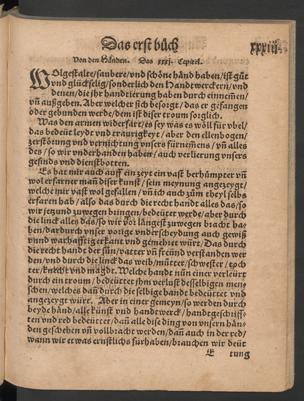 Das erst bůch
xxxiii
Von den Händen. Das xxxj. Capitel.
WOlgestalte/saubere/vnd schöne händ haben/ist gůt
vnd glückselig/sonderlich den Handtwerckern/vnd
denen/die jhr handtierung haben durch einnemen/
vñ außgeben. Aber welcher sich besorgt/das er gefangen
oder gebunden werde/dem ist diser traum sorglich.
Was den armen widerfar/es sey was es wöll für vbel/
das bedeüt leydt vnd traurigkeyt/ aber den ellenbogen/
zerstötung vnd vernichtung vnsers fürnemens/ vñ alles
des/so wir vnderhanden haben/auch verlierung vnsers
gesinds vnd dienstbotten.
Es hat mir auch auff ein zeyt ein vast berhümpter vñ
wol erfarner mañ diser kunst/ sein meynung angezeygt/
welche mir vast wol gefallen / vñ ich auch zům theyl selbs
erfaren hab/also das durch die recht handt alles das/so
wir jetzund zuwegen bringen/bedeütet werde/aber durch
die linck alles das/so wir vor längest zuwegen bracht ha-
ben/dardurch vnser vorige vnderscheydung auch gewiß
vnnd warhafftig erkant vnd gemehret würt. Das durch
die recht handt der sün/vatter vñ freünd verstanden wer-
den/vnd durch die linck das weib/můtter/schwester/toch
ter/knecht vnd magdt. Welche handt nůn einer verleürt
durch ein traum/bedeütet jhm verlust desselbigen men-
schen/welches dañ durch die selbige handt bedeüttet vnd
angezeygt würt. Aber in einer gemeyn/so werden durch
beyde händ/alle künst vnd handtwerck/handtgeschriff-
ten vnd red bedeüttet/dañ alle dise ding von vnsern hän-
den geschehen vñ vollbracht werden/dañ auch in der red/
wann wir etwas ernstlichs fürhaben/brauchen wir deüt
E tung